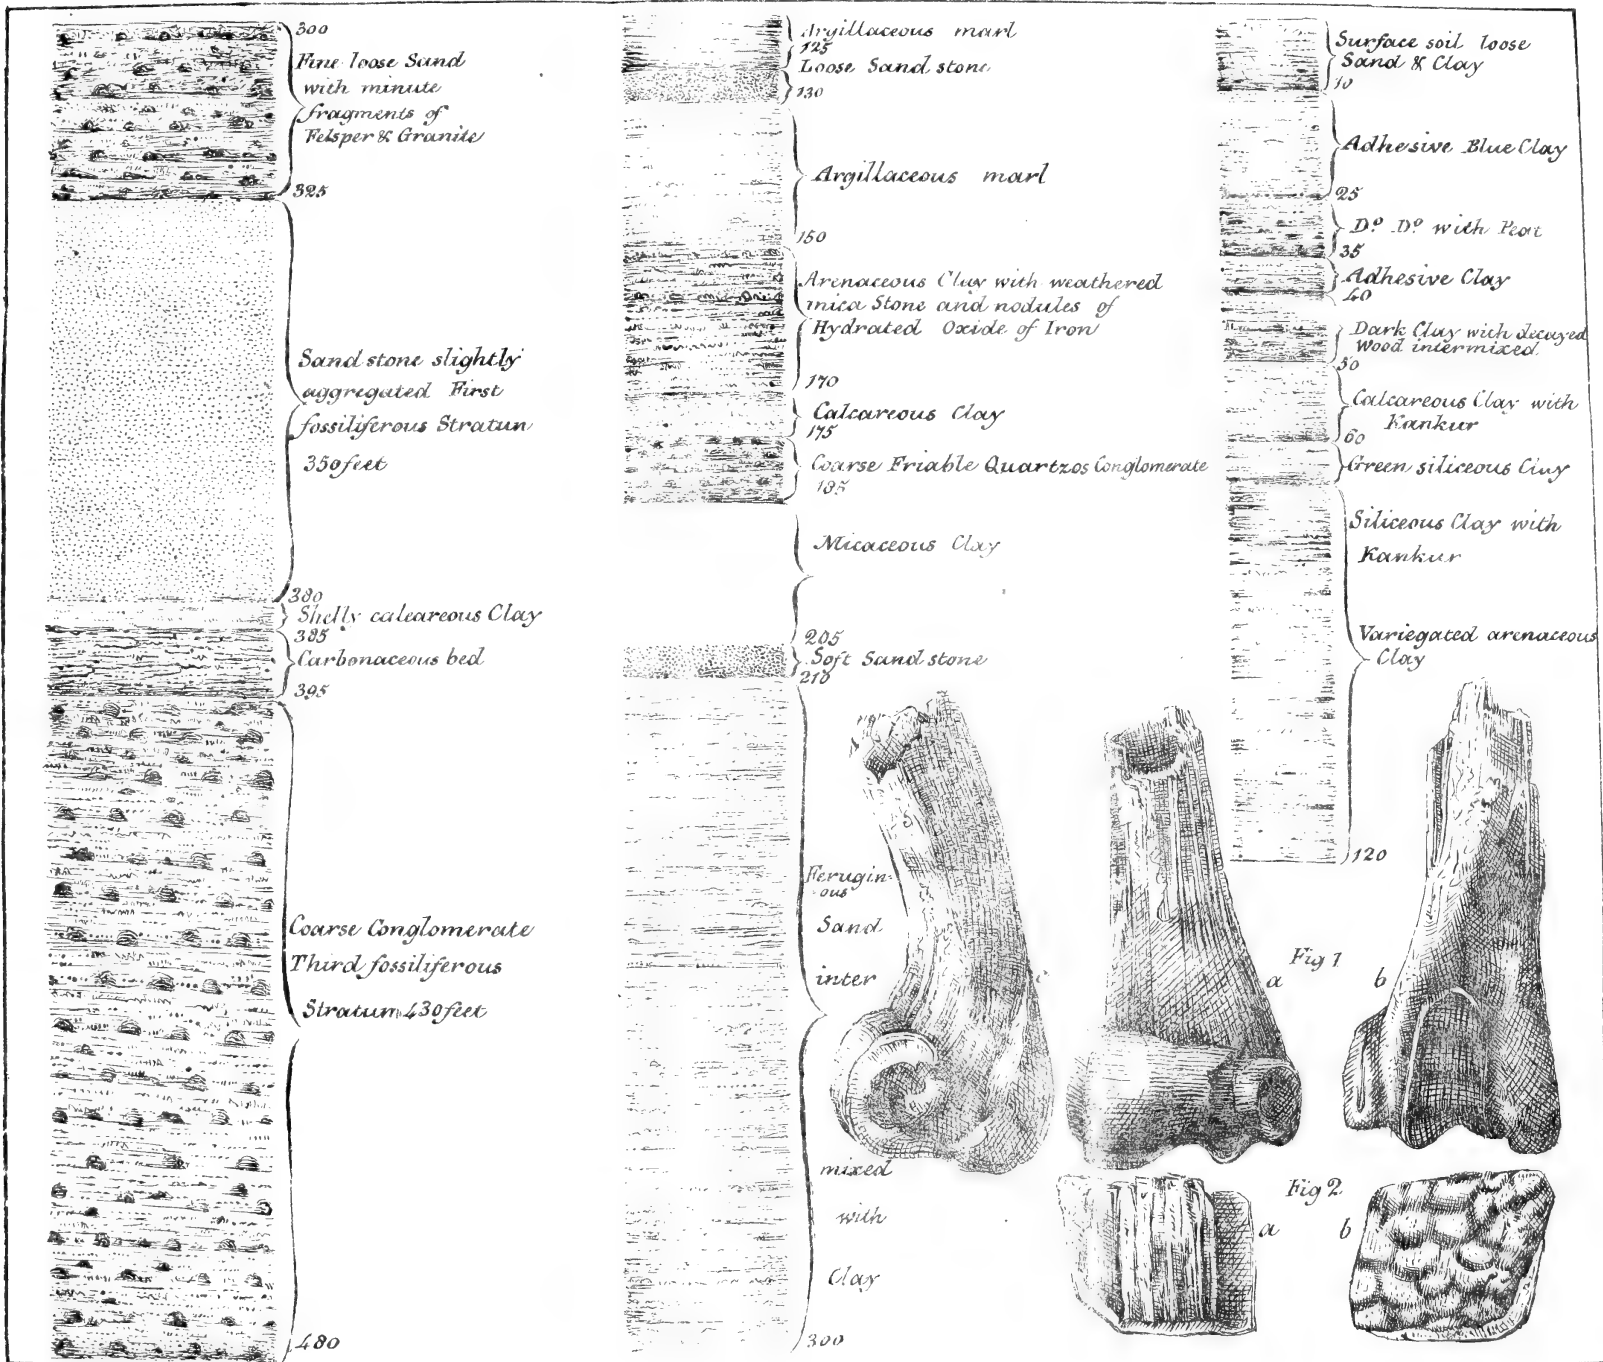 300
Fine loose Sand
with minute
fragments of
Felsper & Granite
325
Sand stone slightly
aggregated First
fossiliferous Stratun
350 feet
380
Shelly calcareous Clay
385
Carbonaceous bed
395
Coarse Conglomerate
Third fossiliferous
Stratum 430 feet
480
Argillaceous marl
125
Loose Sand stone
130
Argillaceous marl
150
Arenaceous Clay with weathered
mica Stone and nodules of
Hydrated Oxide of Iron
170
Calcareous Clay
175
Coarse Friable Quartzos Conglomerate
185
Micaceous Clay
205
Soft Sand stone
210
Ferugin-
ous
Sand
inter
mixed
with
Clay
300
Surface soil loose
Sand & Clay
10
Adhesive Blue Clay
25
Dº Dº with Peat
35
Adhesive Clay
40
Dark Clay with decayed
Wood intermixed
50
Calcareous Clay with
Kankur
60
Green siliceous Clay
Siliceous Clay with
Kankur
Variegated arenaceous
Clay
120
Fig 1
a
b
Fig 2
a
b